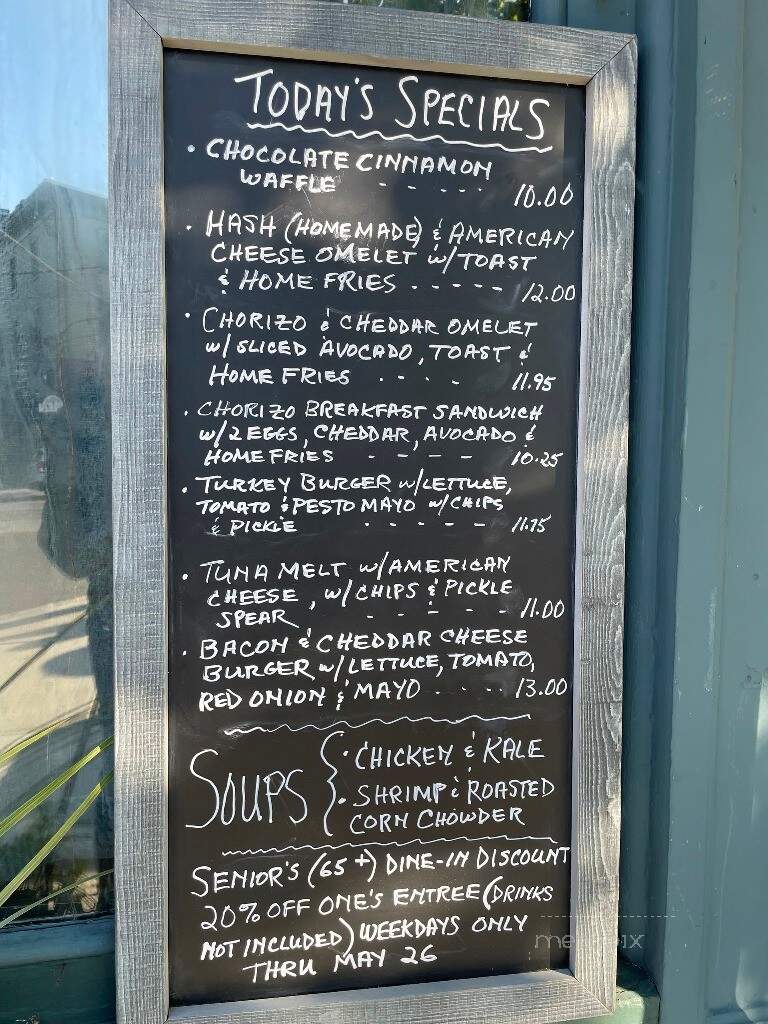 TODAY'S SPECIALS
• CHOCOLATE CINNAMON
WAFFLE - - - - - 10.00
• HASH (HOMEMADE) & AMERICAN
CHEESE OMELET w/TOAST
& HOME FRIES - - - - - 12.00
• CHORIZO & CHEDDAR OMELET
w/SLICED AVOCADO, TOAST &
HOME FRIES - - - - 11.95
• CHORIZO BREAKFAST SANDWICH
w/2 EGGS, CHEDDAR, AVOCADO &
HOME FRIES - - - - 10.25
• TURKEY BURGER w/LETTUCE,
TOMATO & PESTO MAYO w/CHIPS
& PICKLE - - - - - 11.75
• TUNA MELT w/AMERICAN
CHEESE, w/CHIPS & PICKLE
SPEAR - - - - - - 11.00
• BACON & CHEDDAR CHEESE
BURGER w/LETTUCE, TOMATO,
RED ONION & MAYO - - - - 13.00
SOUPS { • CHICKEN & KALE
• SHRIMP & ROASTED
CORN CHOWDER
SENIOR'S (65+) DINE-IN DISCOUNT
20% OFF ONE'S ENTREE (DRINKS
NOT INCLUDED) WEEKDAYS ONLY
THRU MAY 26